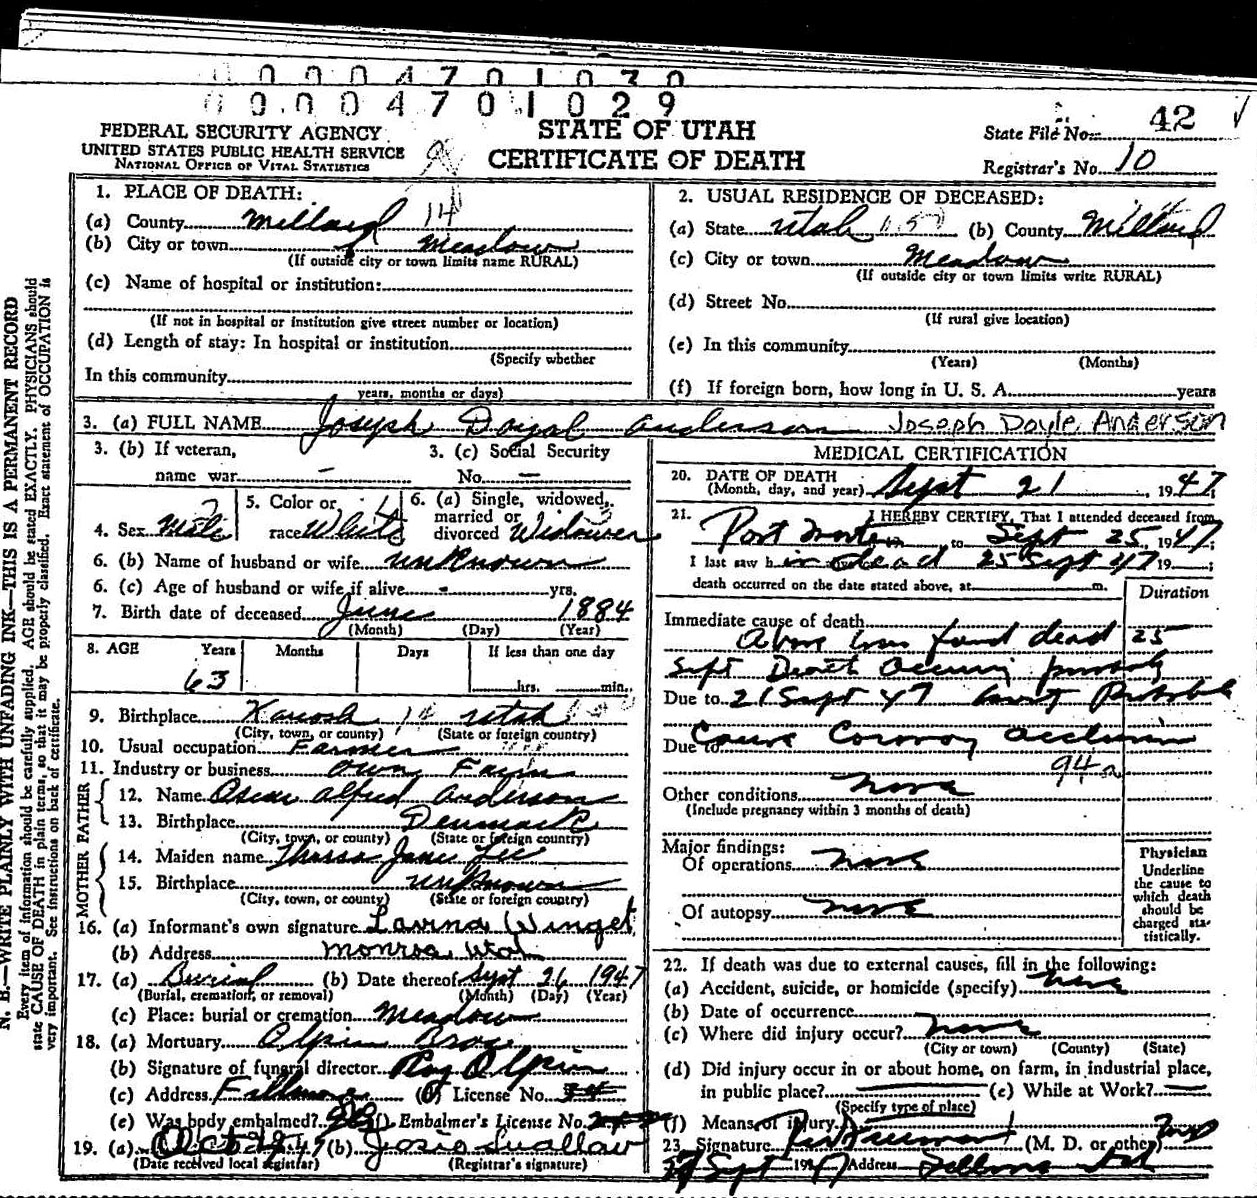 000 4701030
00004701029
FEDERAL SECURITY AGENCY
UNITED STATES PUBLIC HEALTH SERVICE
NATIONAL OFFICE OF VITAL STATISTICS
STATE OF UTAH
CERTIFICATE OF DEATH
State File No. 42
Registrar's No. 10
N. B.—WRITE PLAINLY WITH UNFADING INK—THIS IS A PERMANENT RECORD
Every item of information should be carefully supplied. AGE should be stated EXACTLY. PHYSICIANS should
state CAUSE OF DEATH in plain terms, so that it may be properly classified. Exact statement of OCCUPATION is
very important. See instructions on back of certificate.
1. PLACE OF DEATH:
(a) County Millard 14
(b) City or town Meadow
(If outside city or town limits name RURAL)
(c) Name of hospital or institution:
(If not in hospital or institution give street number or location)
(d) Length of stay: In hospital or institution
(Specify whether
In this community
years, months or days)
2. USUAL RESIDENCE OF DECEASED:
(a) State Utah (b) County Millard
(c) City or town Meadow
(If outside city or town limits write RURAL)
(d) Street No.
(If rural give location)
(e) In this community
(Years) (Months)
(f) If foreign born, how long in U. S. A. years
3. (a) FULL NAME Joseph Doyal Anderson Joseph Doyle Anderson
3. (b) If veteran,
name war –
3. (c) Social Security
No. –
4. Sex Male
5. Color or
race White
6. (a) Single, widowed,
married or
divorced Widower
6. (b) Name of husband or wife unknown
6. (c) Age of husband or wife if alive - yrs.
7. Birth date of deceased June 1884
(Month) (Day) (Year)
8. AGE Years Months Days If less than one day
63 hrs. min.
9. Birthplace Kanosh 14 Utah
(City, town, or county) (State or foreign country)
10. Usual occupation Farmer
11. Industry or business own Farm
FATHER
12. Name Oscar Alfred Anderson
13. Birthplace Denmark
(City, town, or county) (State or foreign country)
MOTHER
14. Maiden name Jane Lee
15. Birthplace unknown
(City, town, or county) (State or foreign country)
16. (a) Informant's own signature Lavina Winget
(b) Address Monroe Utah
17. (a) Burial (b) Date thereof Sept 26 1947
(Burial, cremation, or removal) (Month) (Day) (Year)
(c) Place: burial or cremation Meadow
18. (a) Mortuary Olpin Bros
(b) Signature of funeral director Roy Olpin
(c) Address Fillmore (d) License No.
(e) Was body embalmed? (f) Embalmer's License No.
19. (a) Oct 47 (b) Josie Swallow
(Date received local registrar) (Registrar's signature)
MEDICAL CERTIFICATION
20. DATE OF DEATH
(Month, day, and year) Sept 21, 1947;
21. I HEREBY CERTIFY, That I attended deceased from
Post mortem to Sept 25, 1947;
I last saw him dead 25 Sept 47 19 ;
death occurred on the date stated above, at m.
Duration
Immediate cause of death
Above was found dead 25
Sept Death occuring probably
Due to 21 Sept 47 most Probable
Due to Cause Coronary occlusion
94a
Other conditions none
(Include pregnancy within 3 months of death)
Major findings:
Of operations none
Of autopsy none
Physician
Underline
the cause to
which death
should be
charged sta-
tistically.
22. If death was due to external causes, fill in the following:
(a) Accident, suicide, or homicide (specify) none
(b) Date of occurrence
(c) Where did injury occur? none
(City or town) (County) (State)
(d) Did injury occur in or about home, on farm, in industrial place,
in public place? (e) While at Work?
(Specify type of place)
(f) Means of injury
23. Signature (M. D. or other)
Sept 1947 Address Fillmore Utah